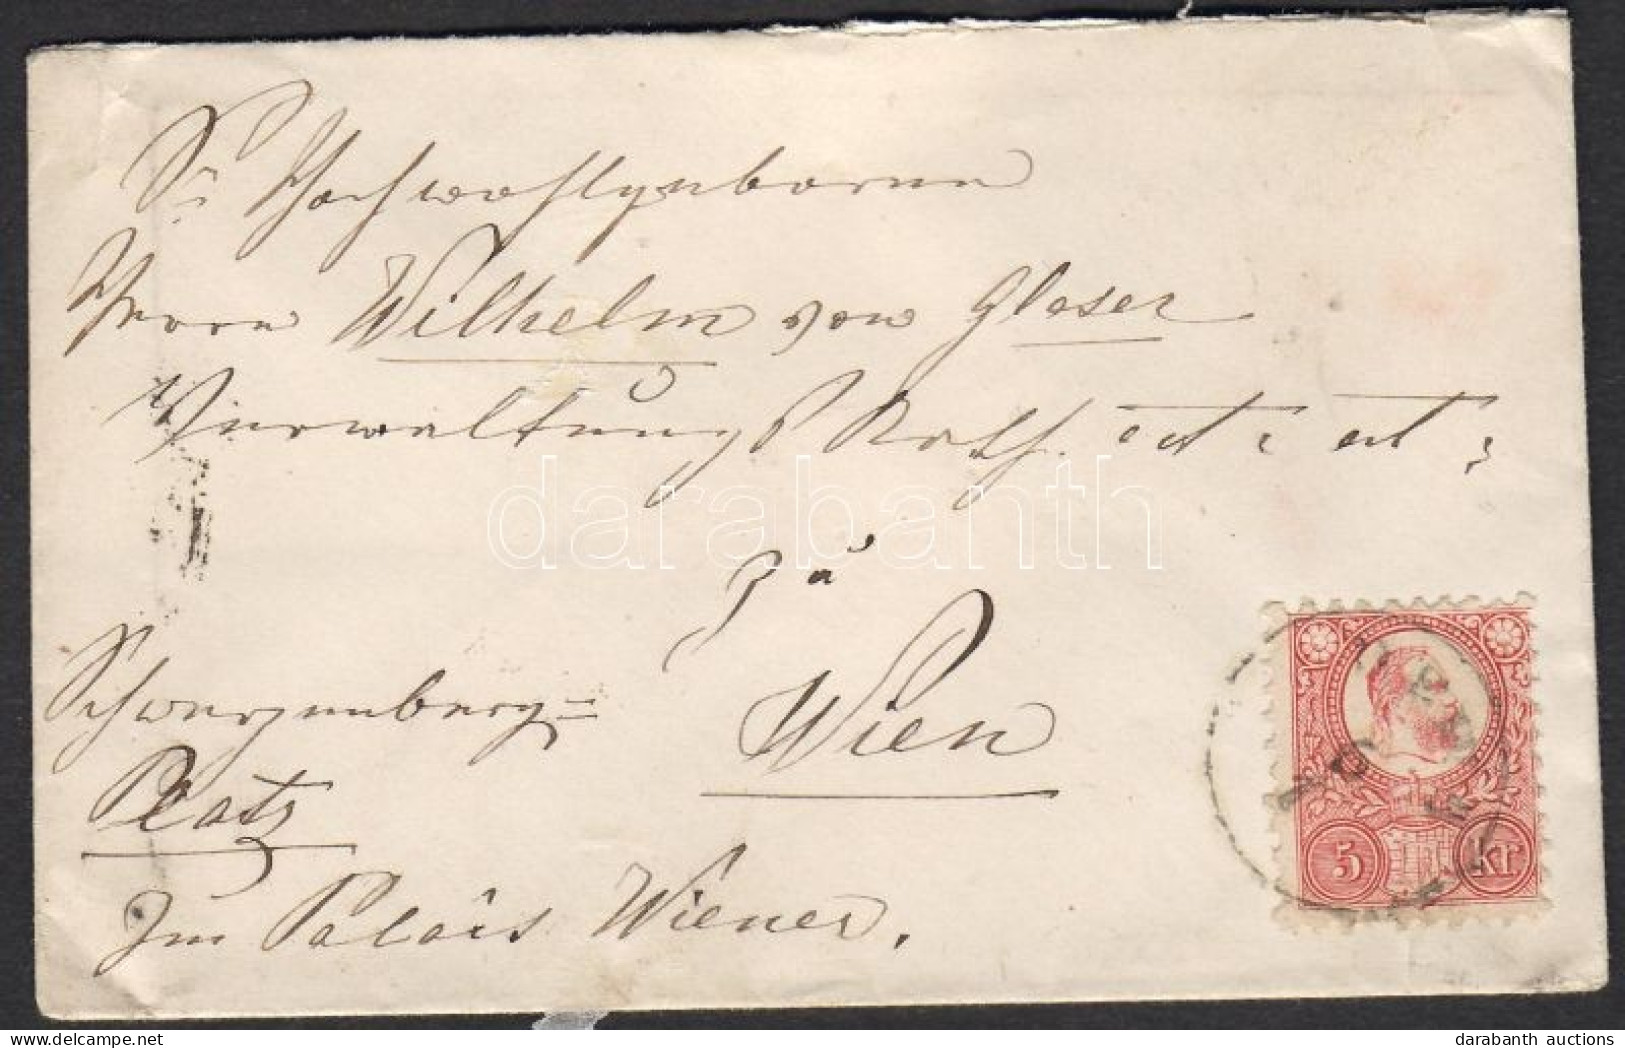 Sr Hochwohlgeboren
Herrn Wilhelm von Glaser
VerwaltungsRath. etc: etc:
zu
Wien
Schwarzenberg=
Platz
Im Palais Wiener.
5 KR
darabanth
darabanth auctions